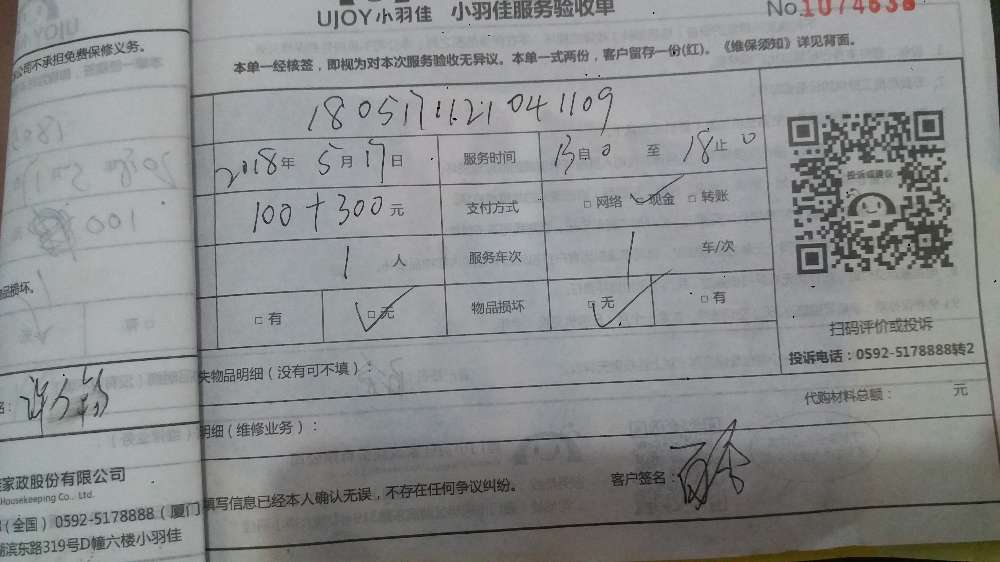 UJOY小羽佳 小羽佳服务验收单
No.1074638
公司不承担免费保修义务。
本单一经核签，即视为对本次服务验收无异议。本单一式两份，客户留存一份(红)。《维保须知》详见背面。
180517112104 1109
2018年 5月17日 服务时间 13自0 至 18止0
100+300元 支付方式 □网络 ✓现金 □转账
1人 服务车次 1 车/次
□有 □无 物品损坏 □无 □有
物品损坏。
投诉或建议
扫码评价或投诉
投诉电话：0592-5178888转2
失物品明细（没有可不填）：
代购材料总额： 元
明细(维修业务)：
家政股份有限公司
Housekeeping Co., Ltd.
填写信息已经本人确认无误，不存在任何争议纠纷。
客户签名：
(全国) 0592-5178888 (厦门
湖滨东路319号D幢六楼小羽佳